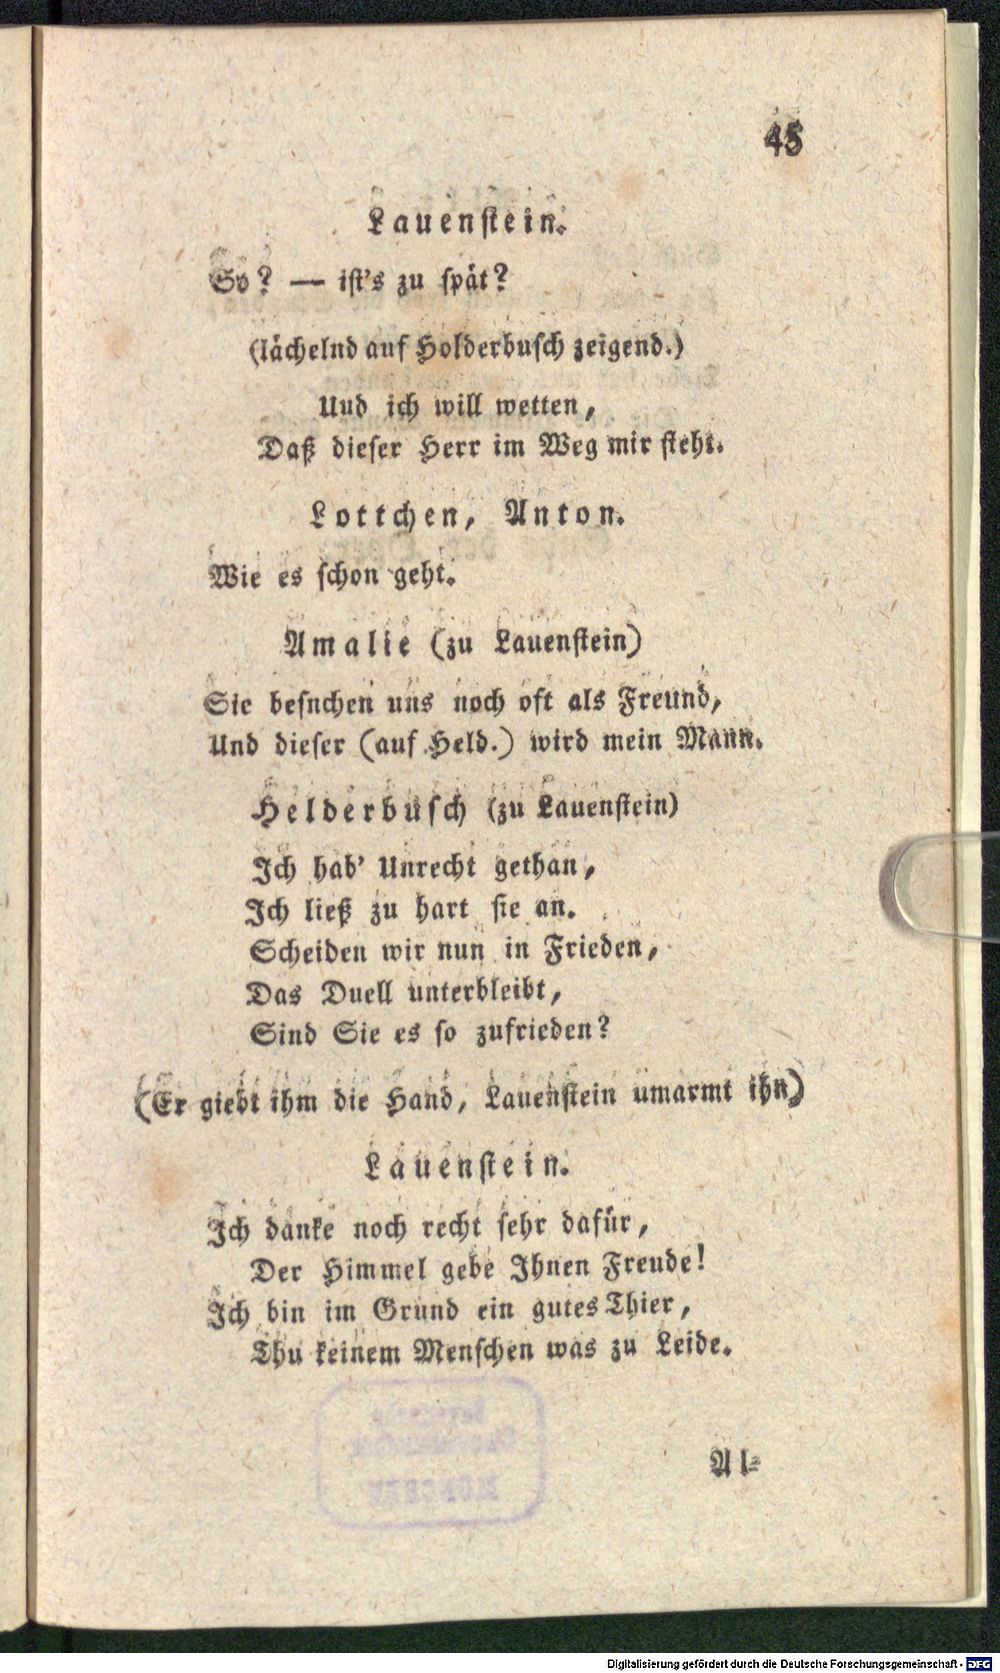 45
Lauenstein.
So? — ist's zu spät?
(lächelnd auf Holderbusch zeigend.)
Und ich will wetten,
Daß dieser Herr im Weg mir steht.
Lottchen, Anton.
Wie es schon geht.
Amalie (zu Lauenstein)
Sie besnchen uns noch oft als Freund,
Und dieser (auf Held.) wird mein Mann.
Helderbusch (zu Lauenstein)
Ich hab' Unrecht gethan,
Ich ließ zu hart sie an.
Scheiden wir nun in Frieden,
Das Duell unterbleibt,
Sind Sie es so zufrieden?
(Er giebt ihm die Hand, Lauenstein umarmt ihn)
Lauenstein.
Ich danke noch recht sehr dafür,
Der Himmel gebe Ihnen Freude!
Ich bin im Grund ein gutes Thier,
Thu keinem Menschen was zu Leide.
Al-
MÜNCHEN
Digitalisierung gefördert durch die Deutsche Forschungsgemeinschaft - DFG